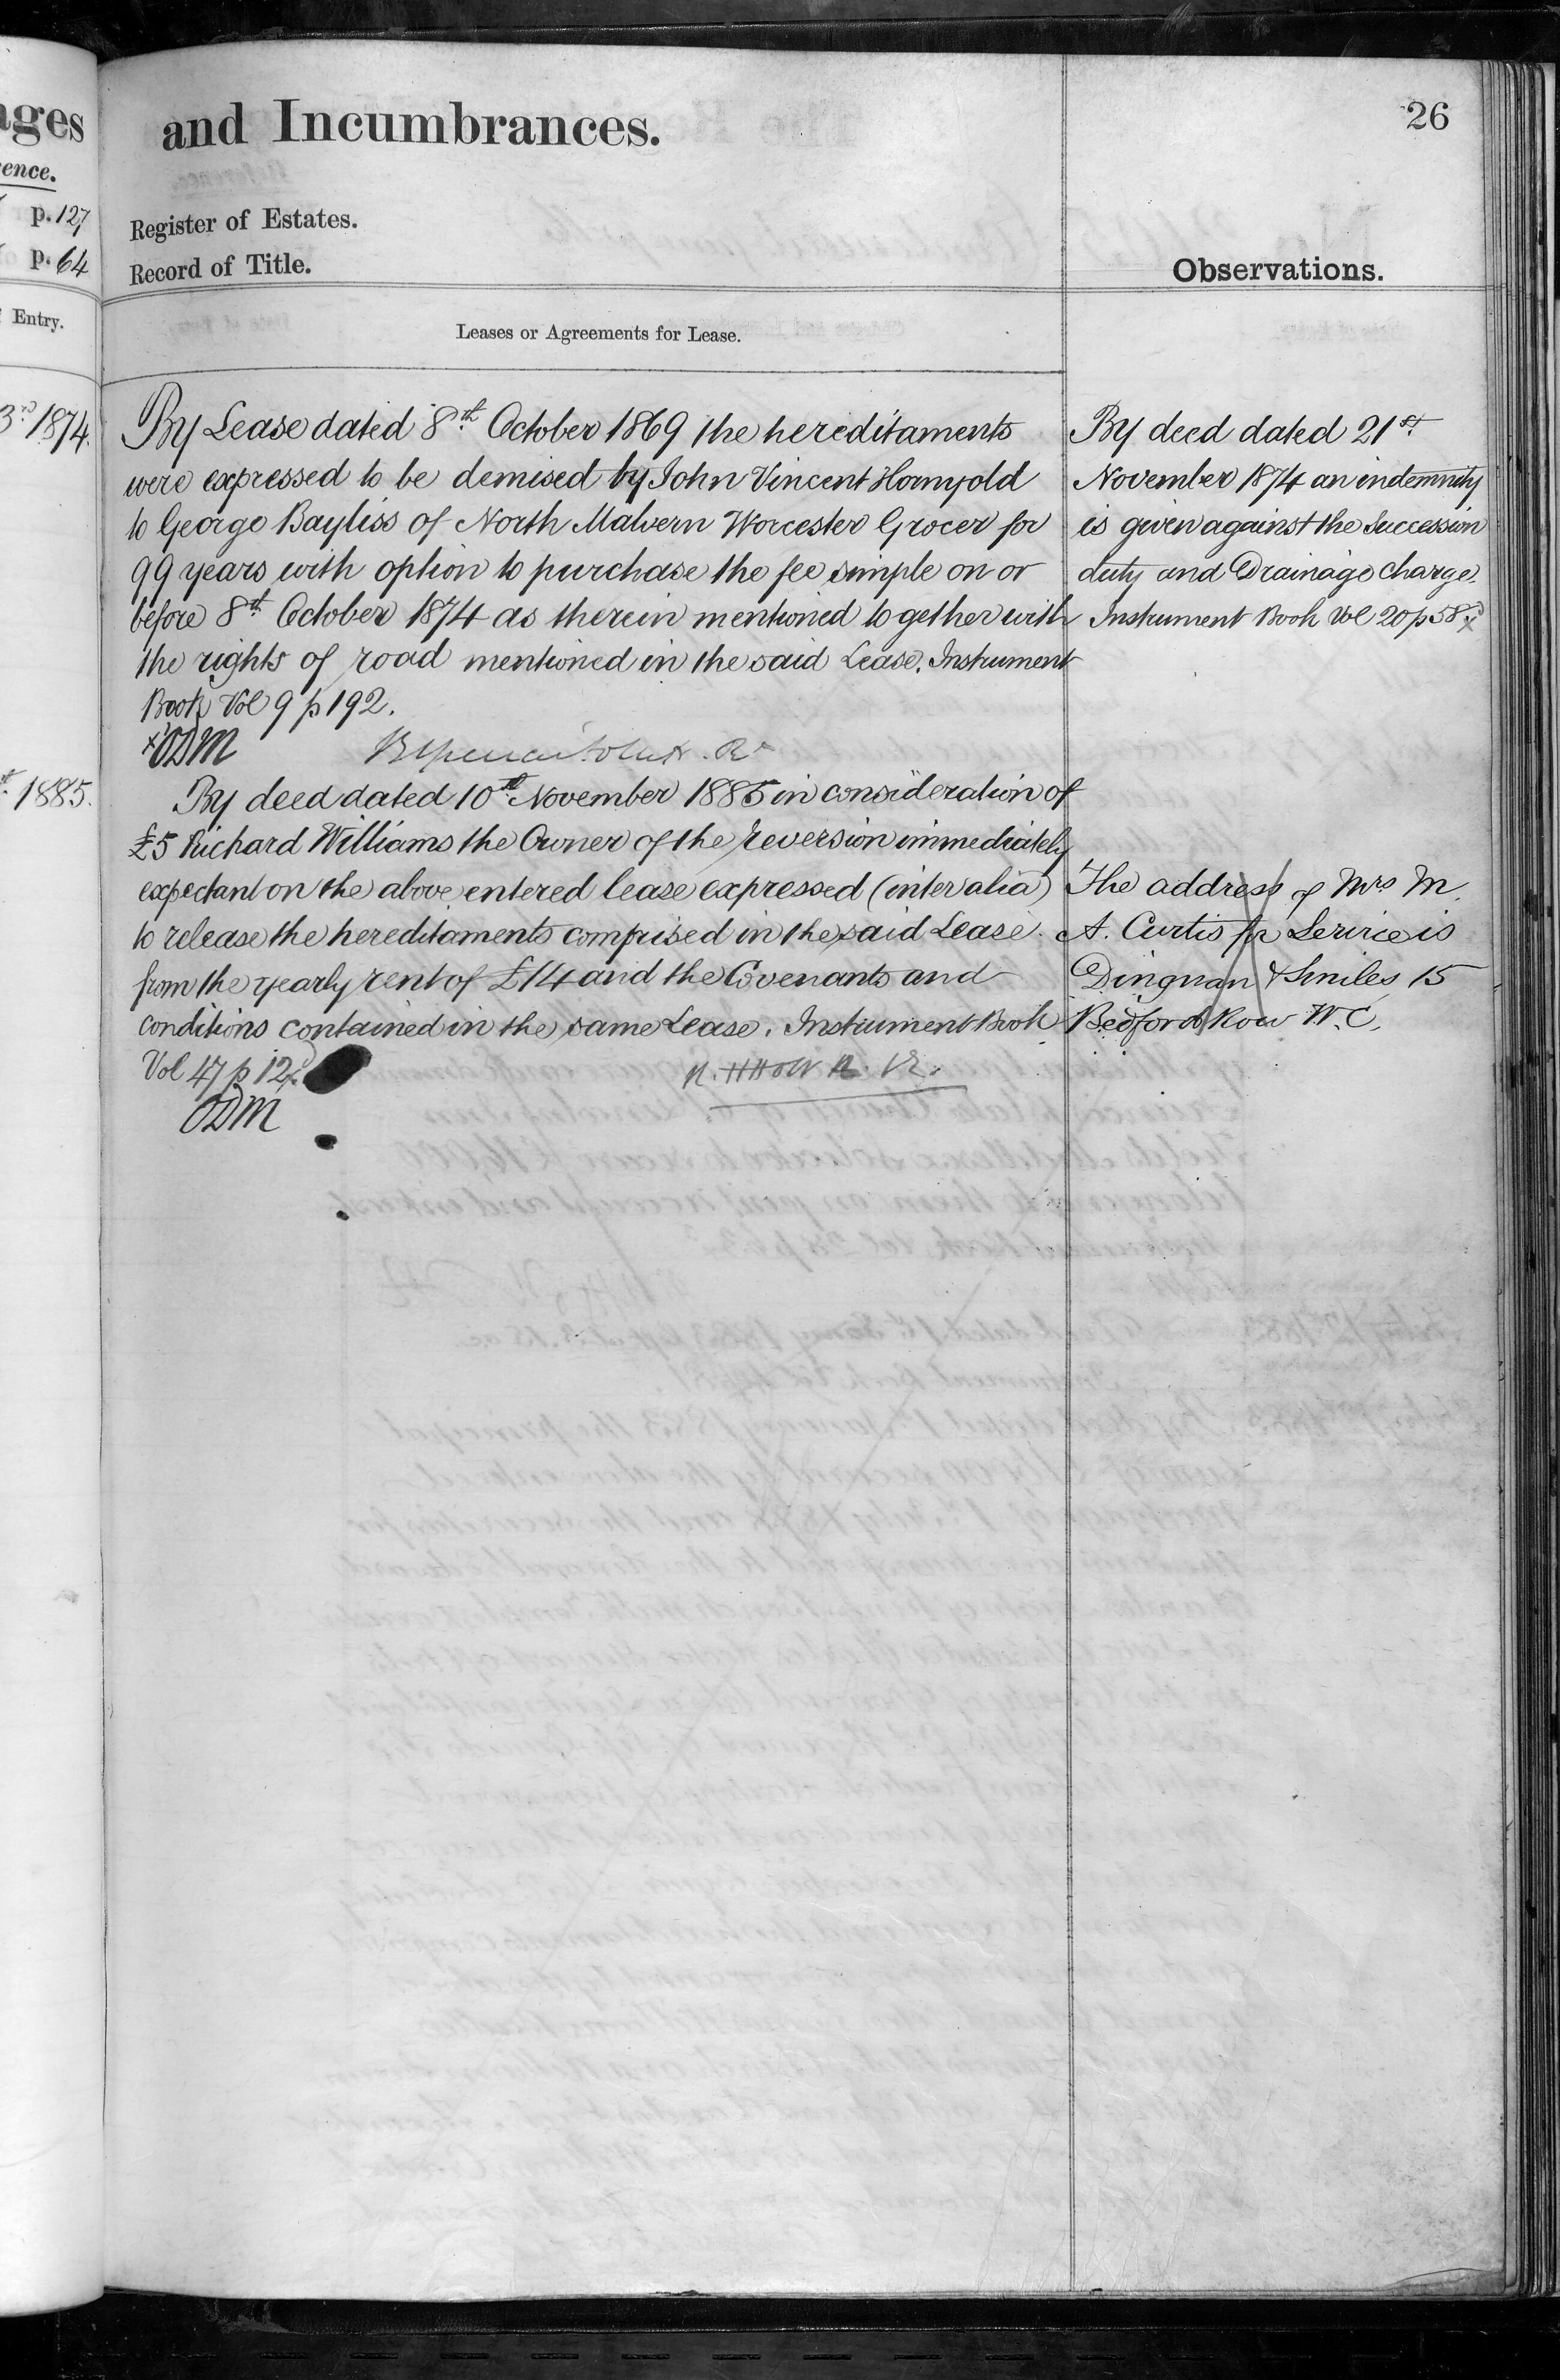 ages
and Incumbrances.
26
ence.
p. 127
p. 64
Register of Estates.
Record of Title.
Observations.
Entry.
Leases or Agreements for Lease.
3rd 1874.
By Lease dated 8th October 1869 the hereditaments
were expressed to be demised by John Vincent Hornyold
to George Bayliss of North Malvern Worcester Grocer for
99 years with option to purchase the fee simple on or
before 8th October 1874 as therein mentioned together with
the rights of road mentioned in the said Lease. Instrument
Book Vol 9 p 192.
ODM
1885.
By deed dated 10th November 1885 in consideration of
£5 Richard Williams the Owner of the reversion immediately
expectant on the above entered lease expressed (inter alia)
to release the hereditaments comprised in the said Lease
from the yearly rent of £14 and the Covenants and
conditions contained in the same Lease. Instrument Book
Vol 47 p 12
ODM
By deed dated 21st
November 1874 an indemnity
is given against the Succession
duty and Drainage Charge.
Instrument Book Vol 20 p 58
The address of Mrs M.
A. Curtis for Service is
Dingnan & Smiles 15
Bedford Row W.C.